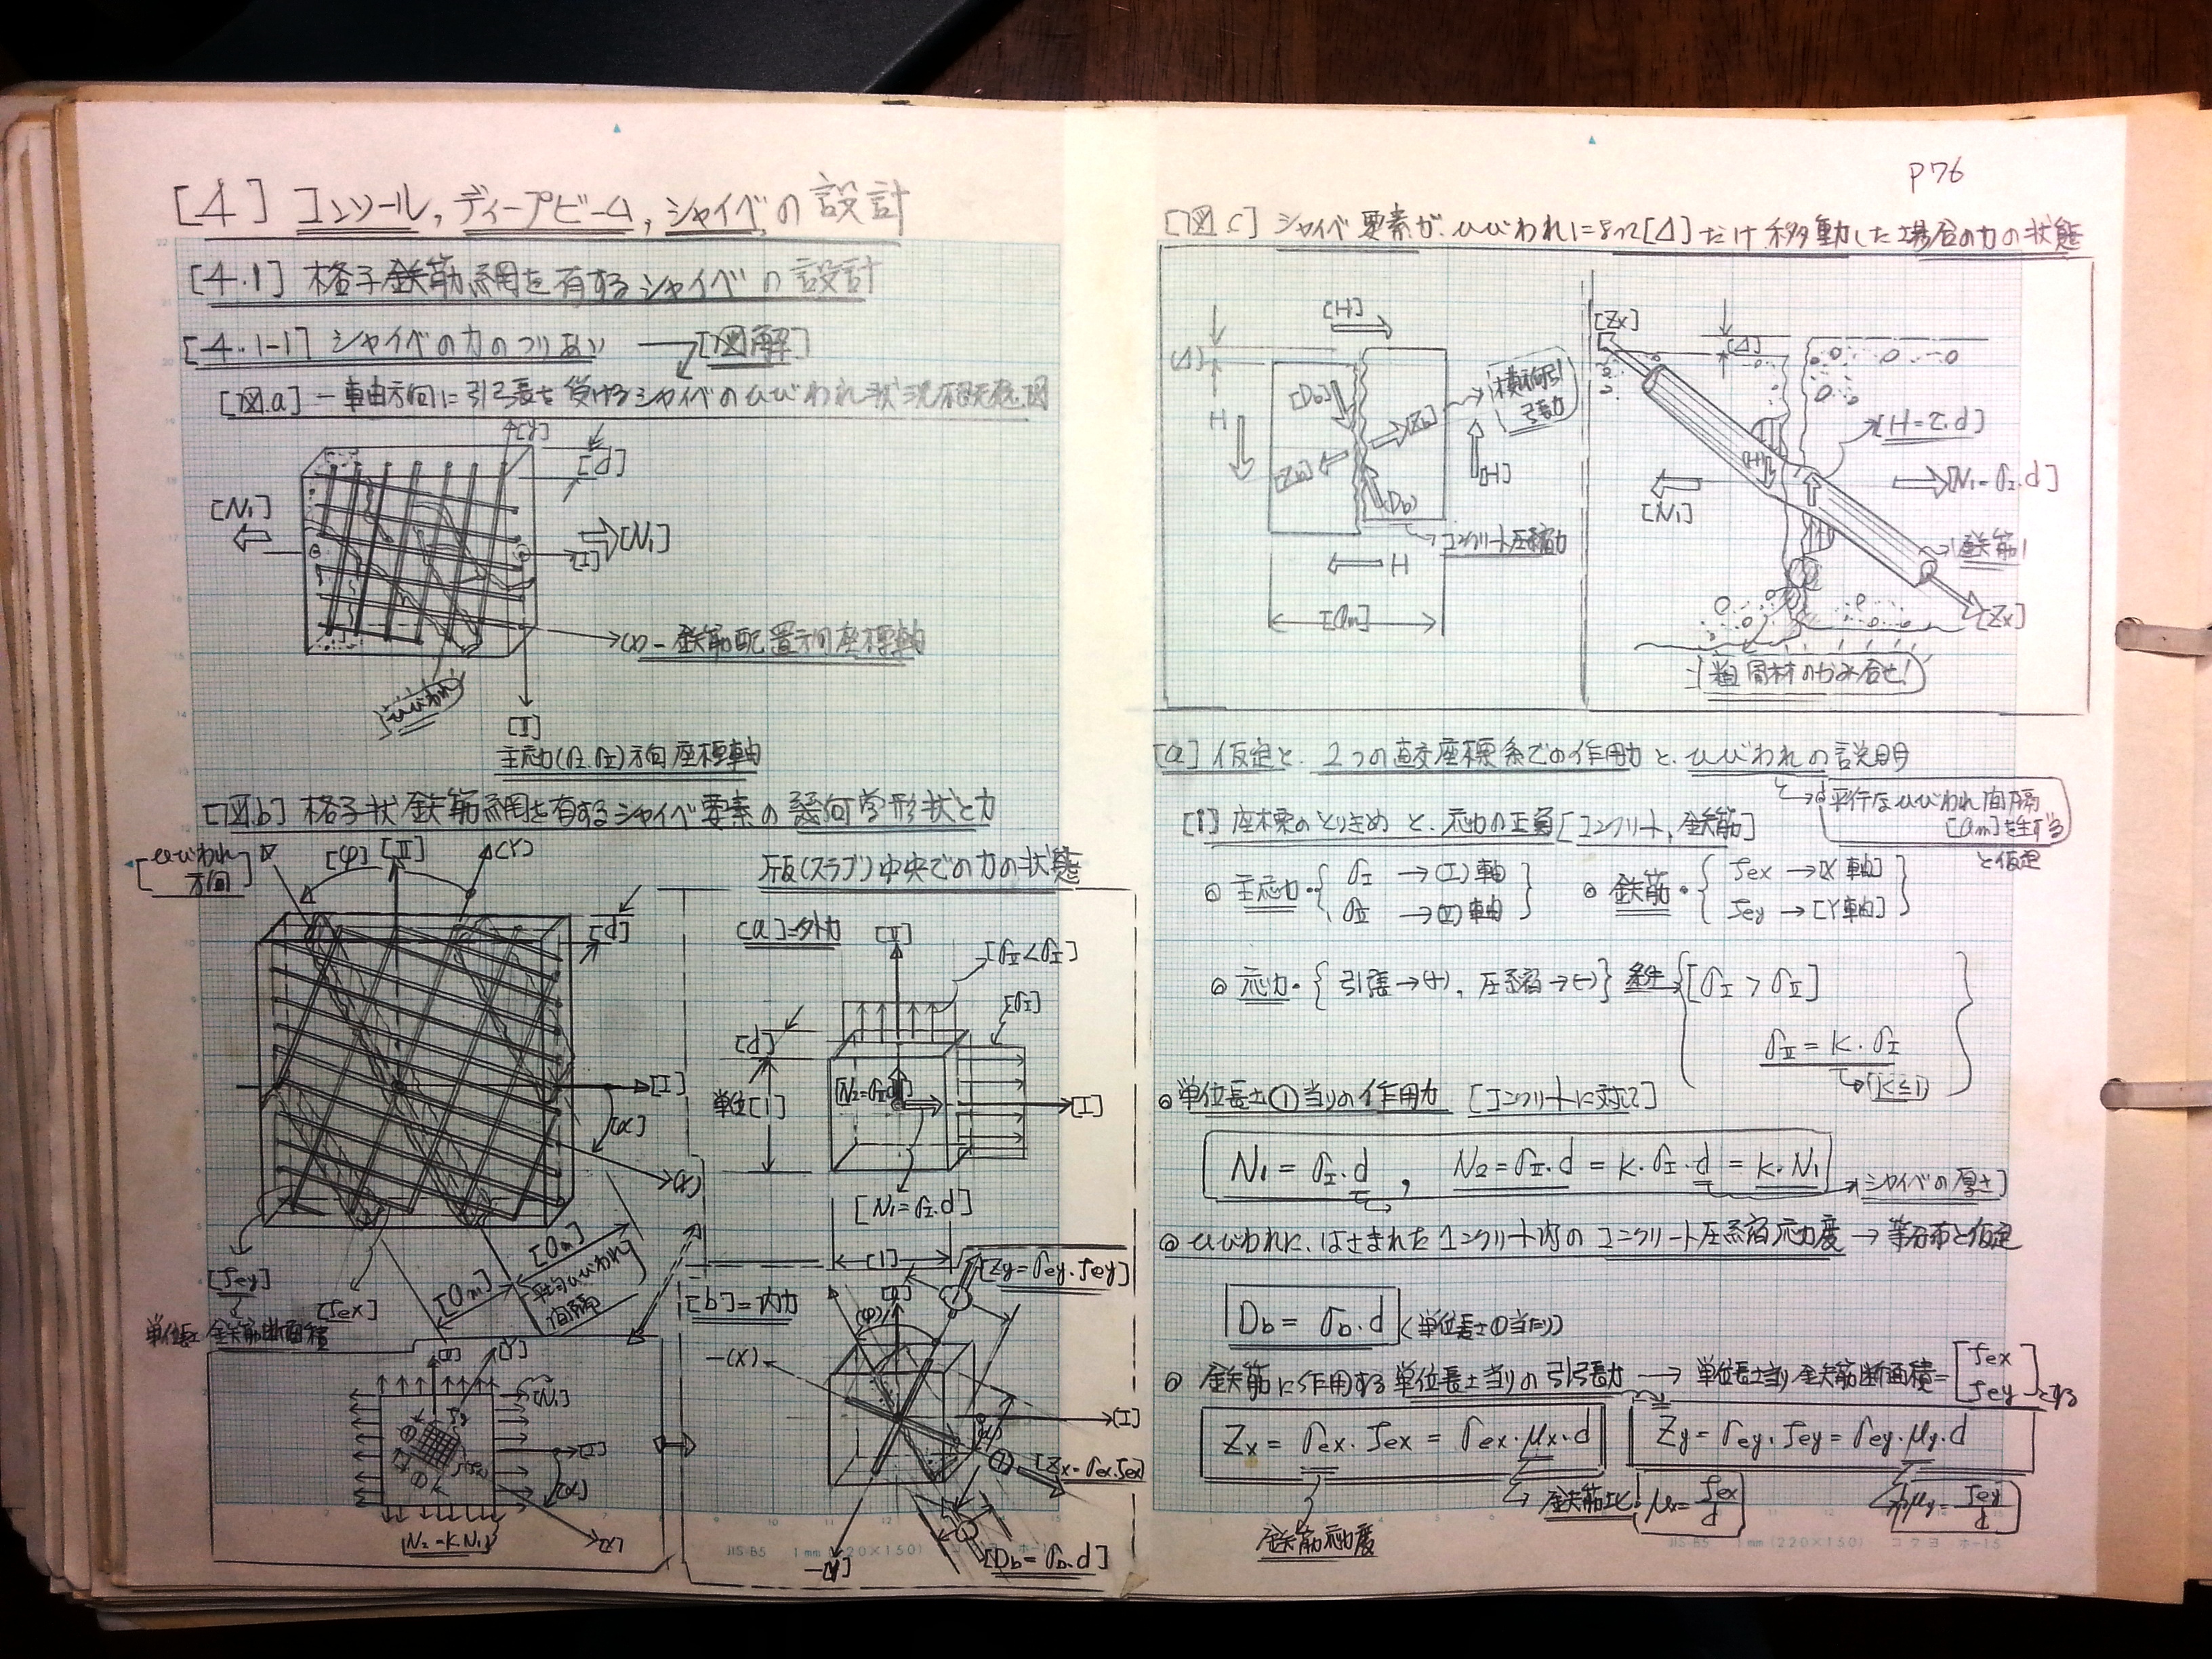 [4] コンソール, ディープビーム, シャイベの設計
[4.1] 格子鉄筋網を有するシャイベの設計
[4.1-1] シャイベの力のつりあい → [図解]
[図.a] 一軸方向に引張を受けるシャイベのひびわれ状況概念図
[Y]
[d]
[N₁]
[N₁]
[I]
(X) - 鉄筋配置方向座標軸
ひびわれ
[II]
主応力(σI.σII)方向座標軸
[図b] 格子状鉄筋網を有するシャイベ要素の幾何学形状と力
[ひびわれ方向]
[φ]
[II]
(Y)
[d]
[I]
[α]
(X)
[fey]
[fex]
[am]
[am]
平均ひびわれ間隔
単位長 鉄筋断面積
版(スラブ)中央での力の状態
[a]=外力
[II]
[σII<σI]
[σI]
[d]
単位[1]
[N₂=σII.d]
[I]
[N₁=σI.d]
[1]
[b]=内力
[Zy=σey.fey]
(φ)
-(X)
[I]
[Zx=σex.fex]
[Db=σb.d]
-[Y]
[II]
[Y]
[N₁]
[I]
[α]
[X]
[N₂=K.N₁]
JIS B5 1mm(220×150)
P76
[図.c] シャイベ要素が、ひびわれによって[Δ]だけ移動した場合の力の状態
[H]
(Δ)
H
[Db]
[Zx]
[Zx]
(Db)
[H]
横方向引張力
コンクリート圧縮力
H
[am]
[Zx]
[Δ]
[H=τ.d]
[H]
[N₁]
[N₁=σI.d]
鉄筋
[Zx]
粗骨材のかみ合せ!
[a] 仮定と、2つの直交座標系での作用力と、ひびわれの説明
平行なひびわれ間隔[am]を生ずると仮定
[1] 座標のとりきめと、応力の正負[コンクリート, 鉄筋]
◎ 主応力・{ σI → (I)軸
σII → (II)軸 }
◎ 鉄筋・{ fex → [X軸]
fey → [Y軸] }
◎ 応力・{ 引張→(+), 圧縮→(-) } 条件 [σI > σII]
σII = K.σI
(K≦1)
◎ 単位長さ①当りの作用力 [コンクリートに対して]
N₁ = σI.d , N₂ = σII.d = K.σI.d = K.N₁
[シャイベの厚さ]
◎ ひびわれに、はさまれたコンクリート内のコンクリート圧縮応力度 → 等分布と仮定
Db = σb.d (単位長さ①当たり)
◎ 鉄筋に作用する単位長さ当りの引張力 → 単位長さ当り鉄筋断面積=[fex fey]とする
Zx = σex.fex = σex.μx.d
Zy = σey.fey = σey.μy.d
鉄筋応力度
鉄筋比 μx = fex/d
μy = fey/d
JIS B5 1mm(220×150) コクヨ ホ-15